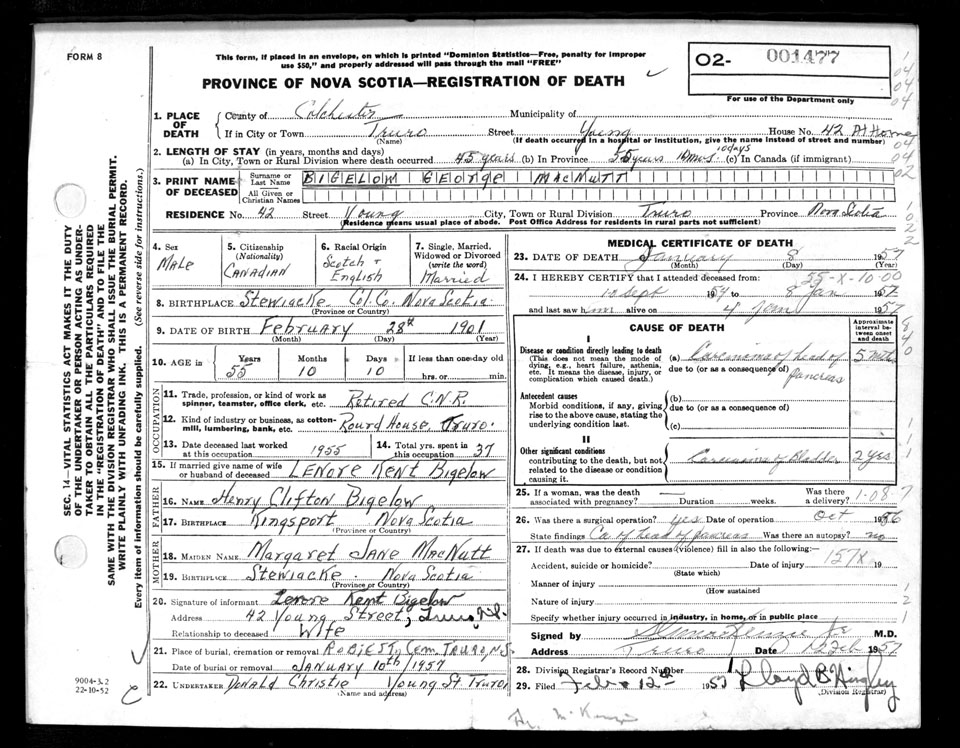 FORM 8
This form, if placed in an envelope, on which is printed "Dominion Statistics—Free, penalty for improper
use $50," and properly addressed will pass through the mail "FREE"
PROVINCE OF NOVA SCOTIA—REGISTRATION OF DEATH
O2- 001477
For use of the Department only
SEC. 14—VITAL STATISTICS ACT MAKES IT THE DUTY
OF THE UNDERTAKER OR PERSON ACTING AS UNDER-
TAKER TO OBTAIN ALL THE PARTICULARS REQUIRED
IN THE "REGISTRATION OF DEATH" AND TO FILE THE
SAME WITH THE DIVISION REGISTRAR WHO SHALL ISSUE THE BURIAL PERMIT.
WRITE PLAINLY WITH UNFADING INK. THIS IS A PERMANENT RECORD.
Every item of information should be carefully supplied. (See reverse side for instructions.)
1. PLACE OF DEATH County of Colchester Municipality of
If in City or Town Truro Street Young House No. 42 At Home
(Name) (If death occurred in a hospital or institution, give the name instead of street and number)
2. LENGTH OF STAY (in years, months and days)
(a) In City, Town or Rural Division where death occurred 45 years (b) In Province 55 years 10 mos 10 days (c) In Canada (if immigrant)
3. PRINT NAME OF DECEASED Surname or Last Name BIGELOW GEORGE MACNUTT
All Given or Christian Names
RESIDENCE No. 42 Street Young City, Town or Rural Division Truro Province Nova Scotia
(Residence means usual place of abode. Post Office Address for residents in rural parts not sufficient)
4. Sex MALE
5. Citizenship (Nationality) CANADIAN
6. Racial Origin Scotch + English
7. Single, Married, Widowed or Divorced (write the word) Married
8. BIRTHPLACE Stewiacke Col. Co. Nova Scotia
(Province or Country)
9. DATE OF BIRTH February 28th 1901
(Month) (Day) (Year)
10. AGE in Years 55 Months 10 Days 10 If less than one day old hrs. or min.
OCCUPATION
11. Trade, profession, or kind of work as spinner, teamster, office clerk, etc. Retired C.N.R.
12. Kind of industry or business, as cotton-mill, lumbering, bank, etc. Round House Truro.
13. Date deceased last worked at this occupation 1955
14. Total yrs. spent in this occupation 37
15. If married give name of wife or husband of deceased LENORE KENT Bigelow
FATHER
16. NAME Henry Clifton Bigelow
17. BIRTHPLACE Kingsport Nova Scotia
(Province or Country)
MOTHER
18. MAIDEN NAME Margaret JANE MacNutt
19. BIRTHPLACE Stewiacke. Nova Scotia
(Province or Country)
20. Signature of informant Lenore Kent Bigelow
Address 42 Young Street, Truro, N.S.
Relationship to deceased Wife
21. Place of burial, cremation or removal ROBIE ST, Cem. TRURO, N.S.
Date of burial or removal JANUARY 10th/1957
22. UNDERTAKER Donald Christie Young St Truro
(Name and address)
9004-3.2
22-10-52
MEDICAL CERTIFICATE OF DEATH
23. DATE OF DEATH January 8 1957
(Month) (Day) (Year)
55-X-10-00
24. I HEREBY CERTIFY that I attended deceased from:
10 Sept 1954 to 8 Jan 1957
and last saw him alive on 4 Jan 1957
CAUSE OF DEATH
Approximate interval between onset and death
I
Disease or condition directly leading to death
(This does not mean the mode of dying, e.g., heart failure, asthenia, etc. It means the disease, injury, or complication which caused death.)
(a) Carcinoma of head of pancreas 5 mths
due to (or as a consequence of)
Antecedent causes
Morbid conditions, if any, giving rise to the above cause, stating the underlying condition last.
(b)
due to (or as a consequence of)
(c)
II
Other significant conditions
contributing to the death, but not related to the disease or condition causing it.
Carcinoma of Bladder 2 yrs
25. If a woman, was the death associated with pregnancy? Duration weeks. Was there a delivery? 1-08-7
26. Was there a surgical operation? yes Date of operation Oct 1956
State findings Ca of head of pancreas Was there an autopsy? no
27. If death was due to external causes (violence) fill in also the following:—
Accident, suicide or homicide? Date of injury 157X 19
(State which)
Manner of injury
(How sustained
Nature of injury
Specify whether injury occurred in industry, in home, or in public place
Signed by M.D.
Address Truro Date 12 Feb 1957
28. Division Registrar's Record Number 1
29. Filed Feb. 12th 1957 Lloyd B Hingley
(Division Registrar)